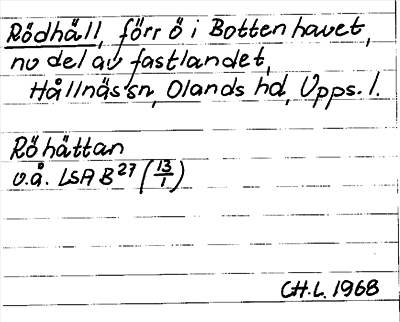 Rödhäll, förr ö i Bottenhavet,
nu del av fastlandet,
Hållnäs sn, Olands hd, Upps. l.
Röhättan
u.å. LSA B²⁷ (13/1)
CH.L. 1968